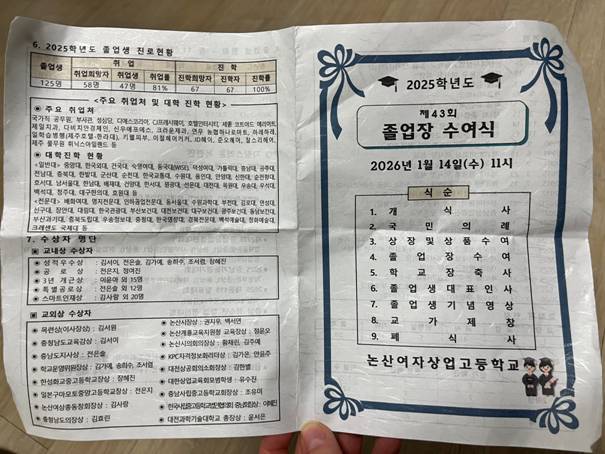 6. 2025학년도 졸업생 진로현황
졸업생 취 업 진 학
취업희망자 취업자 취업률 진학희망자 진학자 진학률
125명 58명 47명 81% 67명 67 100%
<주요 취업처 및 대학 진학 현황>
※ 주요 취업처
국가직 공무원, 부사관, 성심당,
제일지과, 다비치안경체인, 신우에프에스, 크라운제과, 연우
제주
※ 대학진학 현황
<일반대> 중앙대, 한국외대, 건국대, 숙명여대, 동국대(WISE), 덕성여대, 가톨릭대, 충남대, 공주대,
전남대, 충북대, 한밭대, 군산대, 순천대, 한국교통대, 수원대, 용인대, 안양대, 신한대, 순천향대,
호서대, 남서울대, 한남대, 배재대, 건양대, 한서대, 평광대, 선문대, 대전대, 목원대, 우송대, 우석대,
백석대, 청주대, 대구한의대, 호원대 등
<전문대> 배화여대, 명지전문대, 인하공업전문대, 동서울대, 수원과학대, 부천대, 김포대, 연성대,
신구대, 장안대, 대림대, 한국관광대, 부산보건대, 대전보건대, 대구보건대, 광주보건대, 충남보건대,
부산과기대, 충북도립대, 우송정보대, 충청대, 한국영상대, 경북전문대, 백석예술대, 정화예술대,
국제대 등
7. 수상자 명단
▣ 교내상 수상자
※ 성적우수상 : 김서이, 전은솔, 김가예, 송희수, 조서업, 장혜진
※ 공 로 상 : 전은지, 정여진
※ 3년 개근상 : 이윤아 외 15명
※ 특별공로상 : 전은솔 외 12명
※ 스마트인재상 : 김사랑 외 20명
▣ 교외상 수상자
※ 목련상(이사장상) : 김서원
※ 충청남도교육감상 : 김서이
※ 충남도지사상 : 전은솔
※ 학교운영위원장상 : 김가예, 송희수, 조서업
※ 한성화교중고등학교장상 : 장혜진
※ 일본구마모토중앙고등학교장상 : 전은지
※ 논산여상총동창회장상 : 김사랑
※ 충청남도의장상 : 김효린
※ 논산시장상 : 권지우, 백서연
※ 논산계룡교육지원청 교육장상 : 정윤오
※ 논산시의회의장상 : 황채린, 김주예
※ KPC자격정보화리더상 : 김가은, 안윤주
※ 대전상공회의소회장상 : 김한별
※ 대한상업교육회모범학생 : 유수진
※ 충남사립중고등학교장회장상 : 조유미
※ 대전과학기술대학교 총장상 : 윤서은
2025학년도
제43회
졸업장 수여식
2026년 1월 14일(수) 11시
식 순
1. 개 식 사
2. 국 민 의 례
3. 상 장 및 상 품 수 여
4. 졸 업 장 수 여
5. 학 교 장 축 사
6. 졸 업 생 대 표 인 사
7. 졸 업 생 기 념 영 상
8. 교 가 제 창
9. 폐 식 사
논산여자상업고등학교